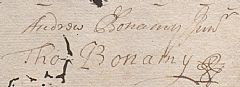 Andrew Bonamy Junr
Tho Bonamy